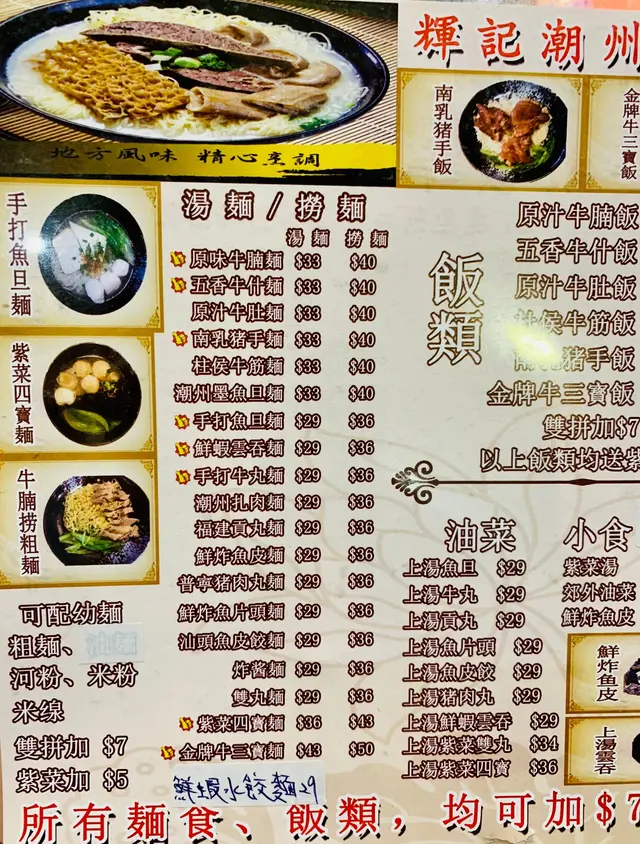 輝記潮州
地方風味 精心烹調
南乳猪手飯
金牌牛三寶飯
手打魚旦麵
紫菜四寶麵
牛腩撈粗麵
湯麵/撈麵
湯麵 撈麵
原味牛腩麵 $33 $40
五香牛什麵 $33 $40
原汁牛肚麵 $33 $40
南乳猪手麵 $33 $40
柱侯牛筋麵 $33 $40
潮州墨魚旦麵 $33 $40
手打魚旦麵 $29 $36
鮮蝦雲吞麵 $29 $36
手打牛丸麵 $29 $36
潮州扎肉麵 $29 $36
福建貢丸麵 $29 $36
鮮炸魚皮麵 $29 $36
普寧猪肉丸麵 $29 $36
鮮炸魚片頭麵 $29 $36
汕頭魚皮餃麵 $29 $36
炸酱麵 $29 $36
雙丸麵 $29 $36
紫菜四寶麵 $36 $43
金牌牛三寶麵 $43 $50
鮮蝦水餃麵29
可配幼麵
粗麵、
河粉、米粉
米線
雙拼加 $7
紫菜加 $5
飯類
原汁牛腩飯
五香牛什飯
原汁牛肚飯
柱侯牛筋飯
南乳猪手飯
金牌牛三寶飯
雙拼加$7
以上飯類均送紫
油菜
上湯魚旦 $29
上湯牛丸 $29
上湯貢丸 $29
上湯魚片頭 $29
上湯魚皮餃 $29
上湯猪肉丸 $29
上湯鮮蝦雲吞 $29
上湯紫菜雙丸 $34
上湯紫菜四寶 $36
小食
紫菜湯
郊外油菜
鮮炸魚皮
鮮炸鱼皮
上湯雲吞
所有麵食、飯類，均可加$7